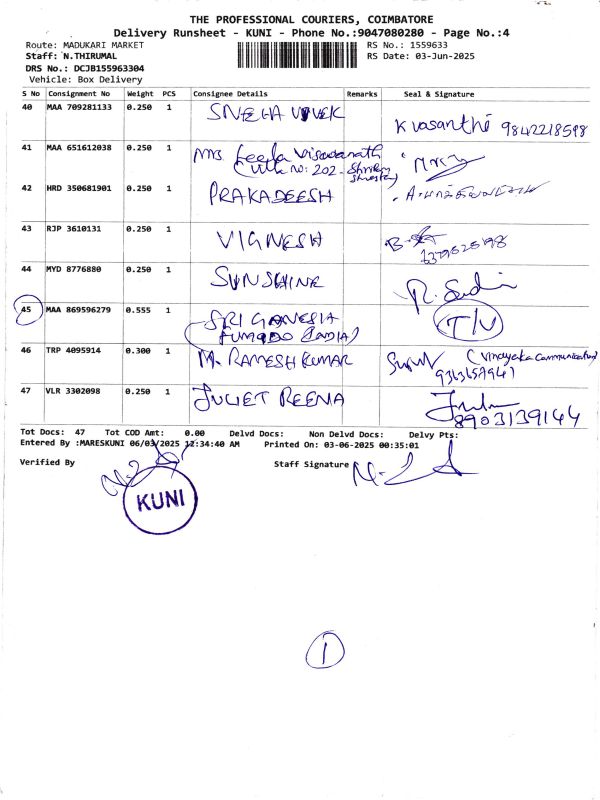 THE PROFESSIONAL COURIERS, COIMBATORE
Delivery Runsheet - KUNI - Phone No.:9047080280 - Page No.:4
Route: MADUKARI MARKET RS No.: 1559633
Staff: N.THIRUMAL RS Date: 03-Jun-2025
DRS No.: DCJB155963304
Vehicle: Box Delivery
S No Consignment No Weight PCS Consignee Details Remarks Seal & Signature
40 MAA 709281133 0.250 1 SNEHA VIVEK K vasanthi 9842218598
41 MAA 651612038 0.250 1 Mrs. Leela Viswanath
Villa No: 202 -
42 HRD 350681901 0.250 1 PRAKADEESH
43 RJP 3610131 0.250 1 VIGNESH
44 MYD 8776880 0.250 1 SUNSHINE
45 MAA 869596279 0.555 1 SRI GANESHA T/V
(INDIA)
46 TRP 4095914 0.300 1 M. RAMESH KUMAR (Vinayaka Communication)
47 VLR 3302098 0.250 1 JULIET REENA
8903139144
Tot Docs: 47 Tot COD Amt: 0.00 Delvd Docs: Non Delvd Docs: Delvy Pts:
Entered By :MARESKUNI 06/03/2025 12:34:40 AM Printed On: 03-06-2025 00:35:01
Verified By Staff Signature
KUNI
1